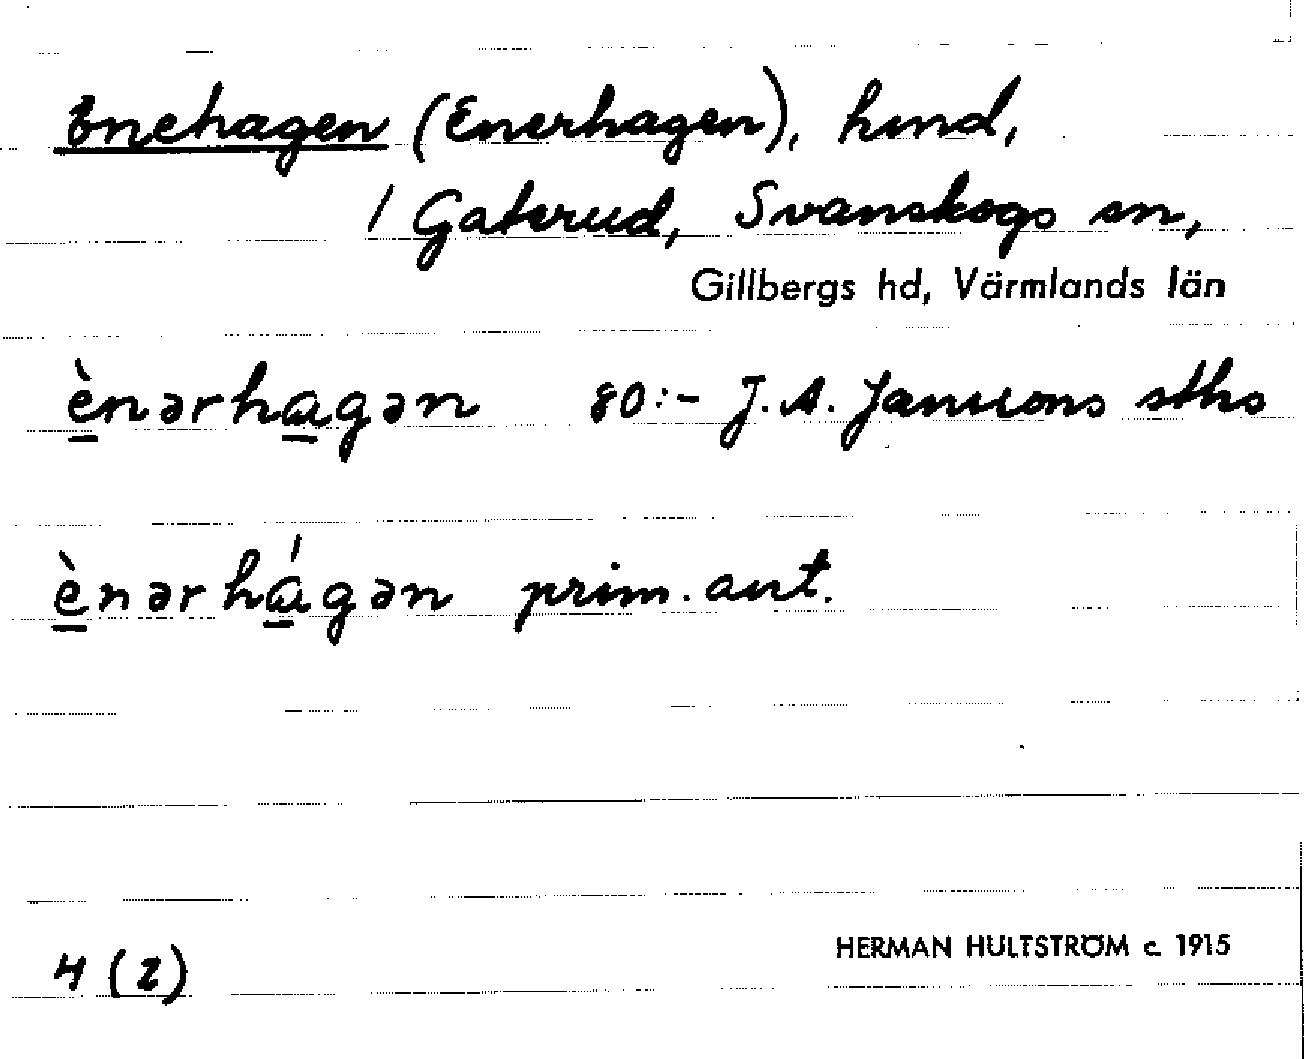 Enehagen (Enerhagen), hmd,
/ Gaterud, Svanskogs sn,
Gillbergs hd, Värmlands län
è̱nərha̱gən 80:- J. A. Janssons sths
è̱nərhá̱gən prim. ant.
4 (2)
HERMAN HULTSTRÖM c. 1915